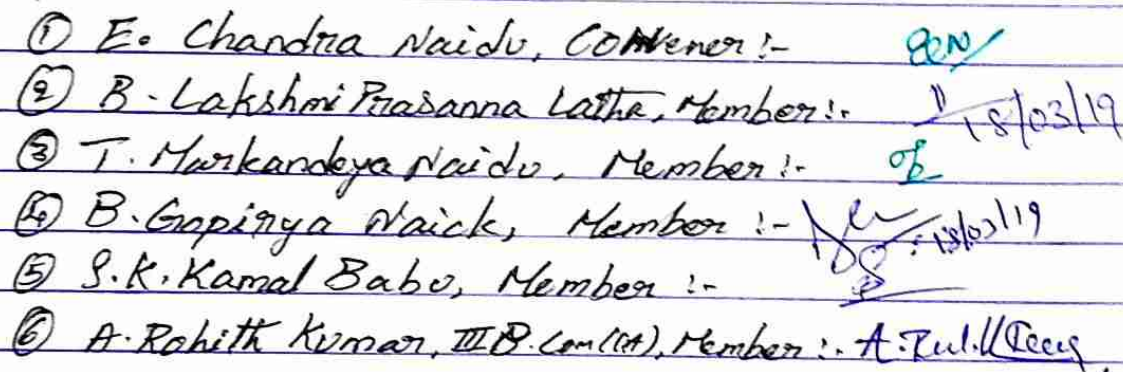 ① E. Chandra Naidu, Convener :-
② B. Lakshmi Prasanna Latha, Member :- 18/03/19
③ T. Markandeya Naidu, Member :-
④ B. Gopinya Naick, Member :- 18/03/19
⑤ S.K. Kamal Babu, Member :-
⑥ A. Rohith Kumar, III B.Com (CA), Member :-